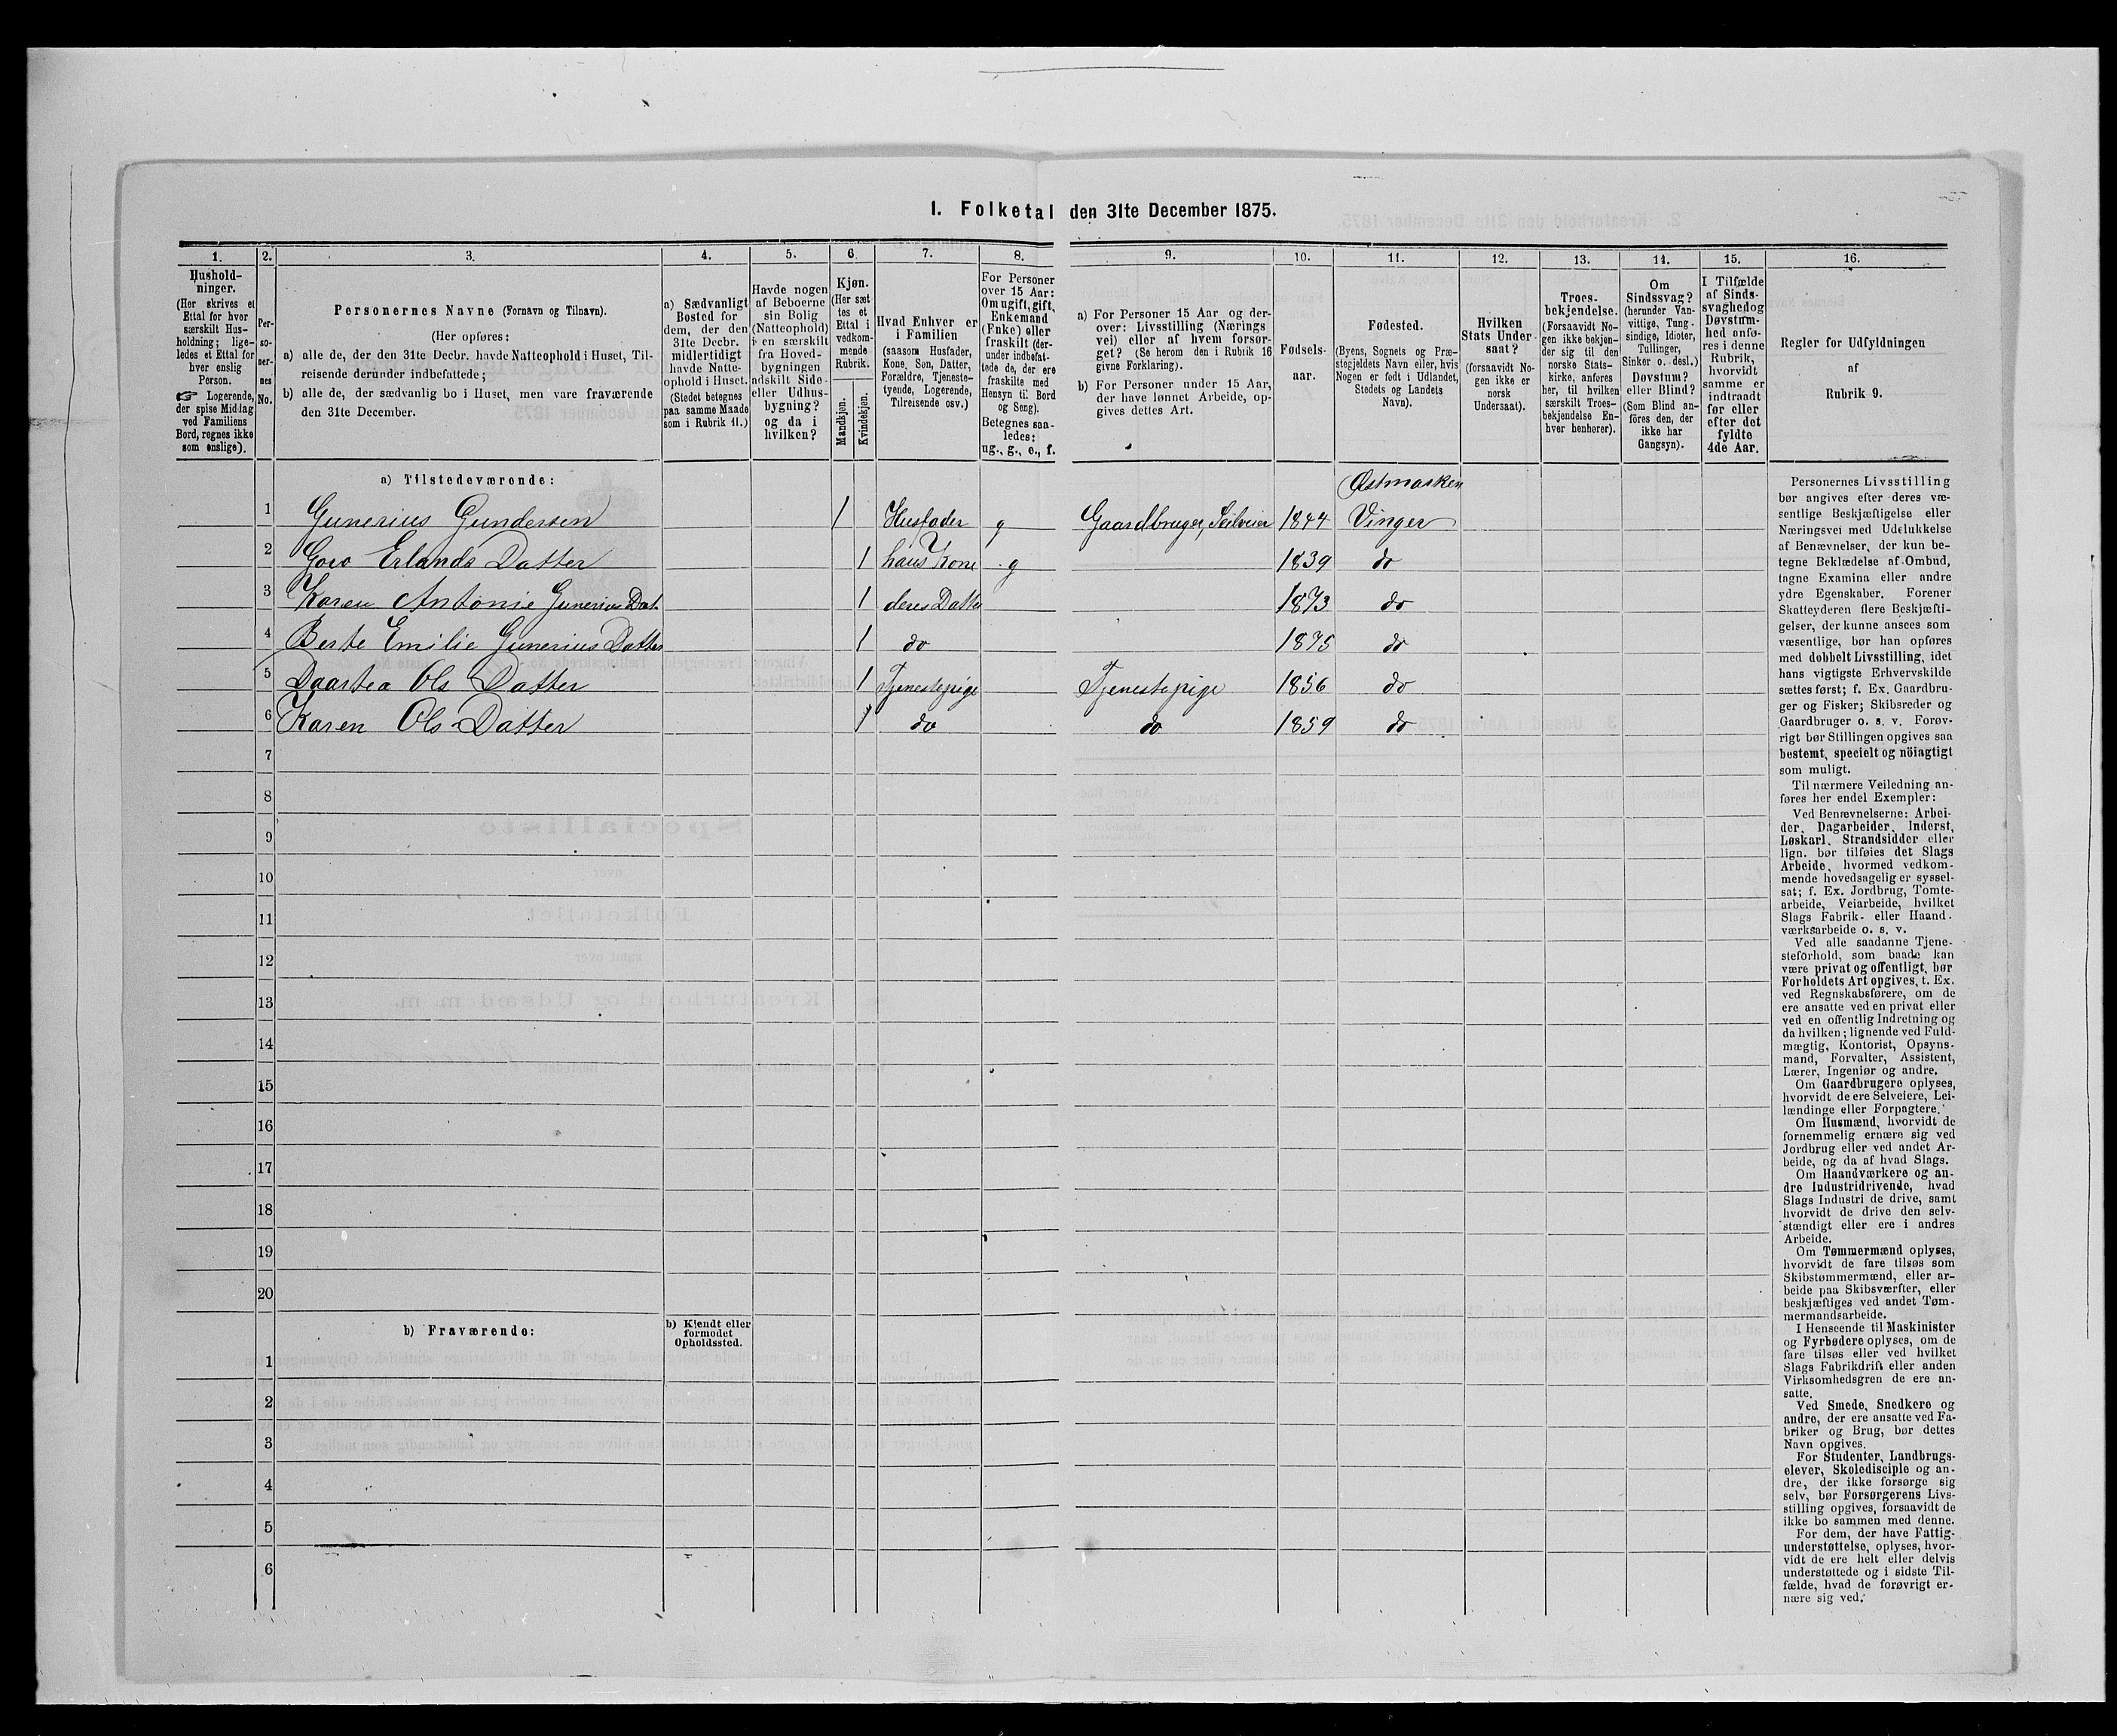 I. Folketal den 31te December 1875.
1.
Hushold-
ninger.
(Her skrives et
Ettal for hver
særskilt Hus-
holdning; lige-
ledes et Ettal for
hver enslig
Person.
☞ Logerende,
der spise Middag
ved Familiens
Bord, regnes ikke
som enslige).
2.
Per-
so-
ner-
nes
No.
3.
Personernes Navne (Fornavn og Tilnavn).
(Her opføres:
a) alle de, der den 31te Decbr. havde Natteophold i Huset, Til-
reisende derunder indbefattede;
b) alle de, der sædvanlig bo i Huset, men vare fraværende
den 31te December.
4.
a) Sædvanligt
Bosted for
dem, der den
31te Decbr.
midlertidigt
havde Natte-
ophold i Huset.
(Stedet betegnes
paa samme Maade
som i Rubrik 11.)
5.
Havde nogen
af Beboerne
sin Bolig
(Natteophold)
i en særskilt
fra Hoved-
bygningen
adskilt Side-
eller Udhus-
bygning?
og da i
hvilken?
6.
Kjøn.
(Her sæt
tes et
Ettal i
vedkom-
mende
Rubrik.
Mandkjøn.
Kvindekjøn.
7.
Hvad Enhver er
i Familien
(saasom Husfader,
Kone, Søn, Datter,
Forældre, Tjeneste-
tyende, Logerende,
Tilreisende osv.)
8.
For Personer
over 15 Aar:
Om ugift, gift,
Enkemand
(Enke) eller
fraskilt (der-
under indbefat-
tede de, der ere
fraskilte med
Hensyn til Bord
og Seng).
Betegnes saa-
ledes:
ug., g., e., f.
9.
a) For Personer 15 Aar og der-
over: Livsstilling (Nærings
vei) eller af hvem forsør-
get? (Se herom den i Rubrik 16
givne Forklaring).
b) For Personer under 15 Aar,
der have lønnet Arbeide, op-
gives dettes Art.
10.
Fødsels-
aar.
11.
Fødested.
(Byens, Sognets og Præ-
stegjeldets Navn eller, hvis
Nogen er født i Udlandet,
Stedets og Landets
Navn).
12.
Hvilken
Stats Under
saat?
(forsaavidt No-
gen ikke er
norsk
Undersaat).
13.
Troes-
bekjendelse.
(Forsaavidt No-
gen ikke bekjen-
der sig til den
norske Stats-
kirke, anføres
her, til hvilken
særskilt Troes-
bekjendelse En-
hver henhører).
14.
Om
Sindssvag?
(herunder Van-
vittige, Tung-
sindige, Idioter,
Tullinger,
Sinker o. desl.)
Døvstum?
eller Blind?
(Som Blind an-
føres den, der
ikke har
Gangsyn).
15.
I Tilfælde
af Sinds-
svaghed og
Døvstum-
hed anfø-
res i denne
Rubrik,
hvorvidt
samme er
indtraadt
før eller
efter det
fyldte
4de Aar.
16.
Regler for Udfyldningen
af
Rubrik 9.
a) Tilstedeværende:
Østmarken
1 Gunerius Gundersen 1 Husfader g Gaardbruger, Seilveier 1844 Vinger
2 Goro Erlands Datter 1 hans Kone g 1839 do
3 Karen Antonie Gunerius Dat. 1 deres Datter 1873 do
4 Berte Emilie Gunerius Datter 1 do 1875 do
5 Daartea Ols Datter 1 Tjenestepige Tjenestepige 1856 do
6 Karen Ols Datter 1 do do 1859 do
7
8
9
10
11
12
13
14
15
16
17
18
19
20
b) Fraværende:
b) Kjendt eller
formodet
Opholdssted.
1
2
3
4
5
6
Personernes Livsstilling
bør angives efter deres væ-
sentlige Beskjæftigelse eller
Næringsvei med Udelukkelse
af Benævnelser, der kun be-
tegne Beklædelse af Ombud,
tagne Examina eller andre
ydre Egenskaber. Forener
Skatteyderen flere Beskjæfti-
gelser, der kunne ansees som
væsentlige, bør han opføres
med dobbelt Livsstilling, idet
hans vigtigste Erhvervskilde
sættes først; f. Ex. Gaardbru-
ger og Fisker; Skibsreder og
Gaardbruger o. s. v. Forøv-
rigt bør Stillingen opgives saa
bestemt, specielt og nöiagtigt
som muligt.
Til nærmere Veiledning an-
føres her endel Exempler:
Ved Benævnelserne: Arbei-
der, Dagarbeider, Inderst,
Løskarl, Strandsidder eller
lign. bør tilføies det Slags
Arbeide, hvormed vedkom-
mende hovedsagelig er syssel-
sat; f. Ex. Jordbrug, Tomte-
arbeide, Veiarbeide, hvilket
Slags Fabrik- eller Haand-
værksarbeide o. s. v.
Ved alle saadanne Tjene-
steforhold, som baade kan
være privat og offentligt, bør
Forholdets Art opgives, t. Ex.
ved Regnskabsførere, om de
ere ansatte ved en privat eller
ved en offentlig Indretning og
da hvilken; lignende ved Fuld-
mægtig, Kontorist, Opsyns-
mand, Forvalter, Assistent,
Lærer, Ingeniør og andre.
Om Gaardbrugere oplyses,
hvorvidt de ere Selveiere, Lei-
lændinge eller Forpagtere.
Om Husmænd, hvorvidt de
fornemmelig ernære sig ved
Jordbrug eller ved andet Ar-
beide, og da af hvad Slags.
Om Haandværkere og an-
dre Industridrivende, hvad
Slags Industri de drive, samt
hvorvidt de drive den selv-
stændigt eller ere i andres
Arbeide.
Om Tømmermænd oplyses,
hvorvidt de fare tilsøs som
Skibstømmermænd, eller ar-
beide paa Skibsværfter, eller
beskjæftiges ved andet Tøm-
mermandsarbeide.
I Henseende til Maskinister
og Fyrbødere oplyses, om de
fare tilsøs eller ved hvilket
Slags Fabrikdrift eller anden
Virksomhedsgren de ere an-
satte.
Ved Smede, Snedkere og
andre, der ere ansatte ved Fa-
briker og Brug, bør dettes
Navn opgives.
For Studenter, Landbrugs-
elever, Skoledisciple og an-
dre, der ikke forsørge sig
selv, bør Forsørgerens Livs-
stilling opgives, forsaavidt de
ikke bo sammen med denne.
For dem, der have Fattig-
understøttelse, oplyses, hvor-
vidt de ere helt eller delvis
understøttede og i sidste Til-
fælde, hvad de forøvrigt er-
nære sig ved.